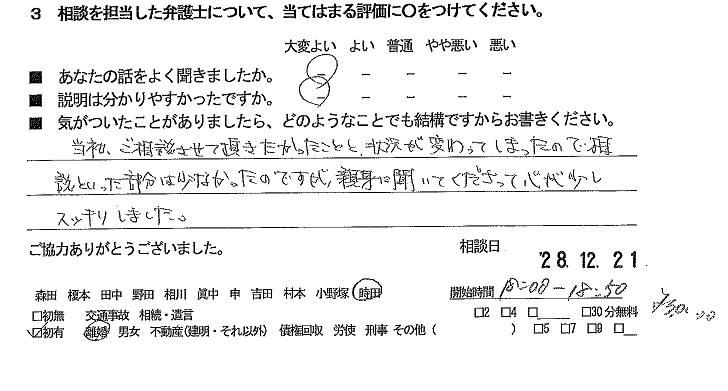 3 相談を担当した弁護士について、当てはまる評価に〇をつけてください。
大変よい よい 普通 やや悪い 悪い
■ あなたの話をよく聞きましたか。 － － － － －
■ 説明は分かりやすかったですか。 － － － － －
■ 気がついたことがありましたら、どのようなことでも結構ですからお書きください。
当初、ご相談させて頂きたかったことと、状況が変わってしまったので解
説といった部分は少なかったのですが、親身に聞いてくださって心が少し
スッキリしました。
ご協力ありがとうございました。 相談日 '28.12.21
森田 榎本 田中 野田 相川 眞中 申 吉田 村本 小野塚 時田 開始時間 18:00-18:50
□初無 交通事故 相続・遺言 □2 □4 □ □30分無料
☑初有 離婚 男女 不動産(建明・それ以外) 債権回収 労使 刑事 その他( ) □5 □7 □9 □